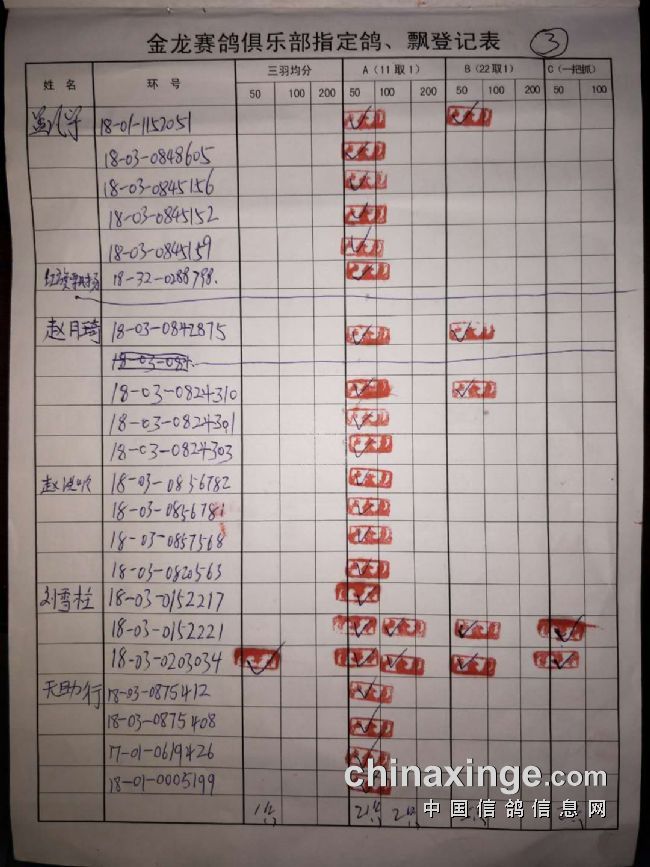 金龙赛鸽俱乐部指定鸽、飘登记表 ③
姓名 环号 三羽均分 A(11取1) B(22取1) C(一把抓)
50 100 200 50 100 200 50 100 200 50 100
18-01-1152051
18-03-0848605
18-03-0845156
18-03-0845152
18-03-0845159
18-32-0288798.
赵月琦 18-03-0842875
18-03-0824310
18-03-0824301
18-03-0824303
18-03-0856782
18-03-0856781
18-03-0857568
18-03-0820563
刘雪柱 18-03-0152217
18-03-0152221
18-03-0203034
天助行 18-03-0875412
18-03-0875408
17-01-0619426
18-01-0005199
chinaxinge.com
中国信鸽信息网